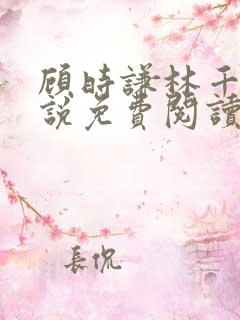 顾時謙林千
說免費閱讀
長侃